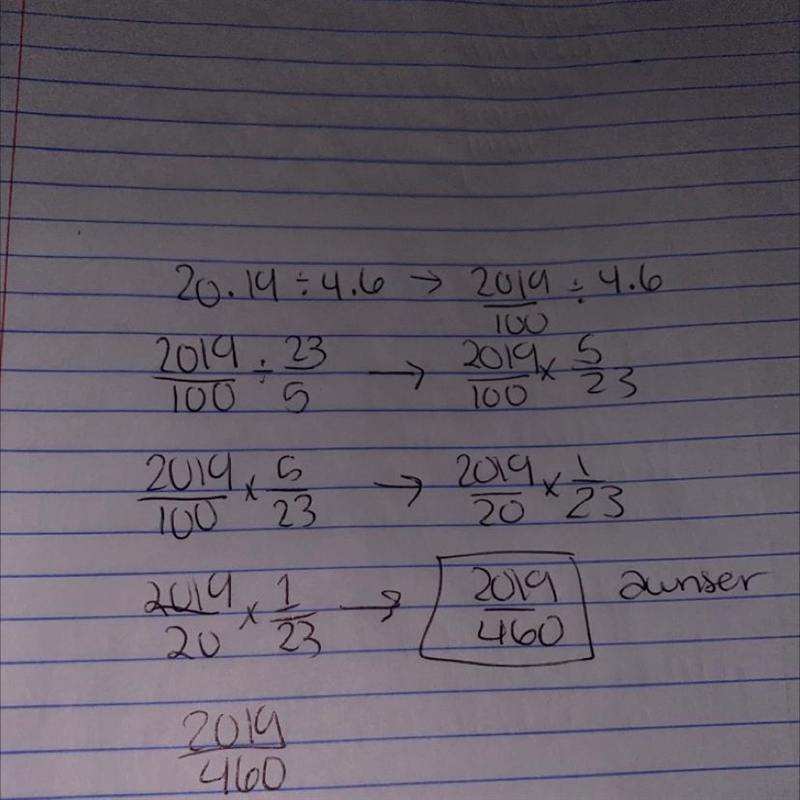 20.19 ÷ 4.6 → 2019/100 ÷ 4.6
2019/100 ÷ 23/5 → 2019/100 × 5/23
2019/100 × 5/23 → 2019/20 × 1/23
2019/20 × 1/23 → 2019/460 awnser
2019/460